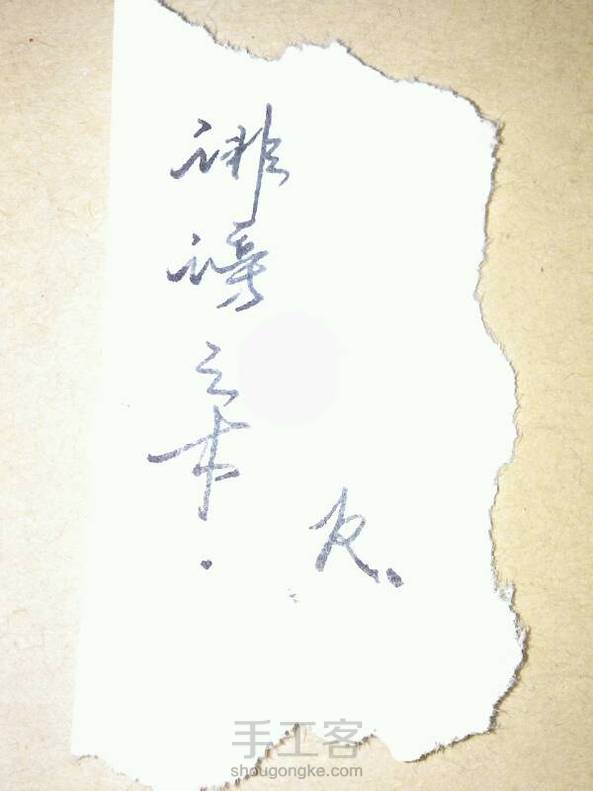 诽谤之木.
手工客
shougongke.com